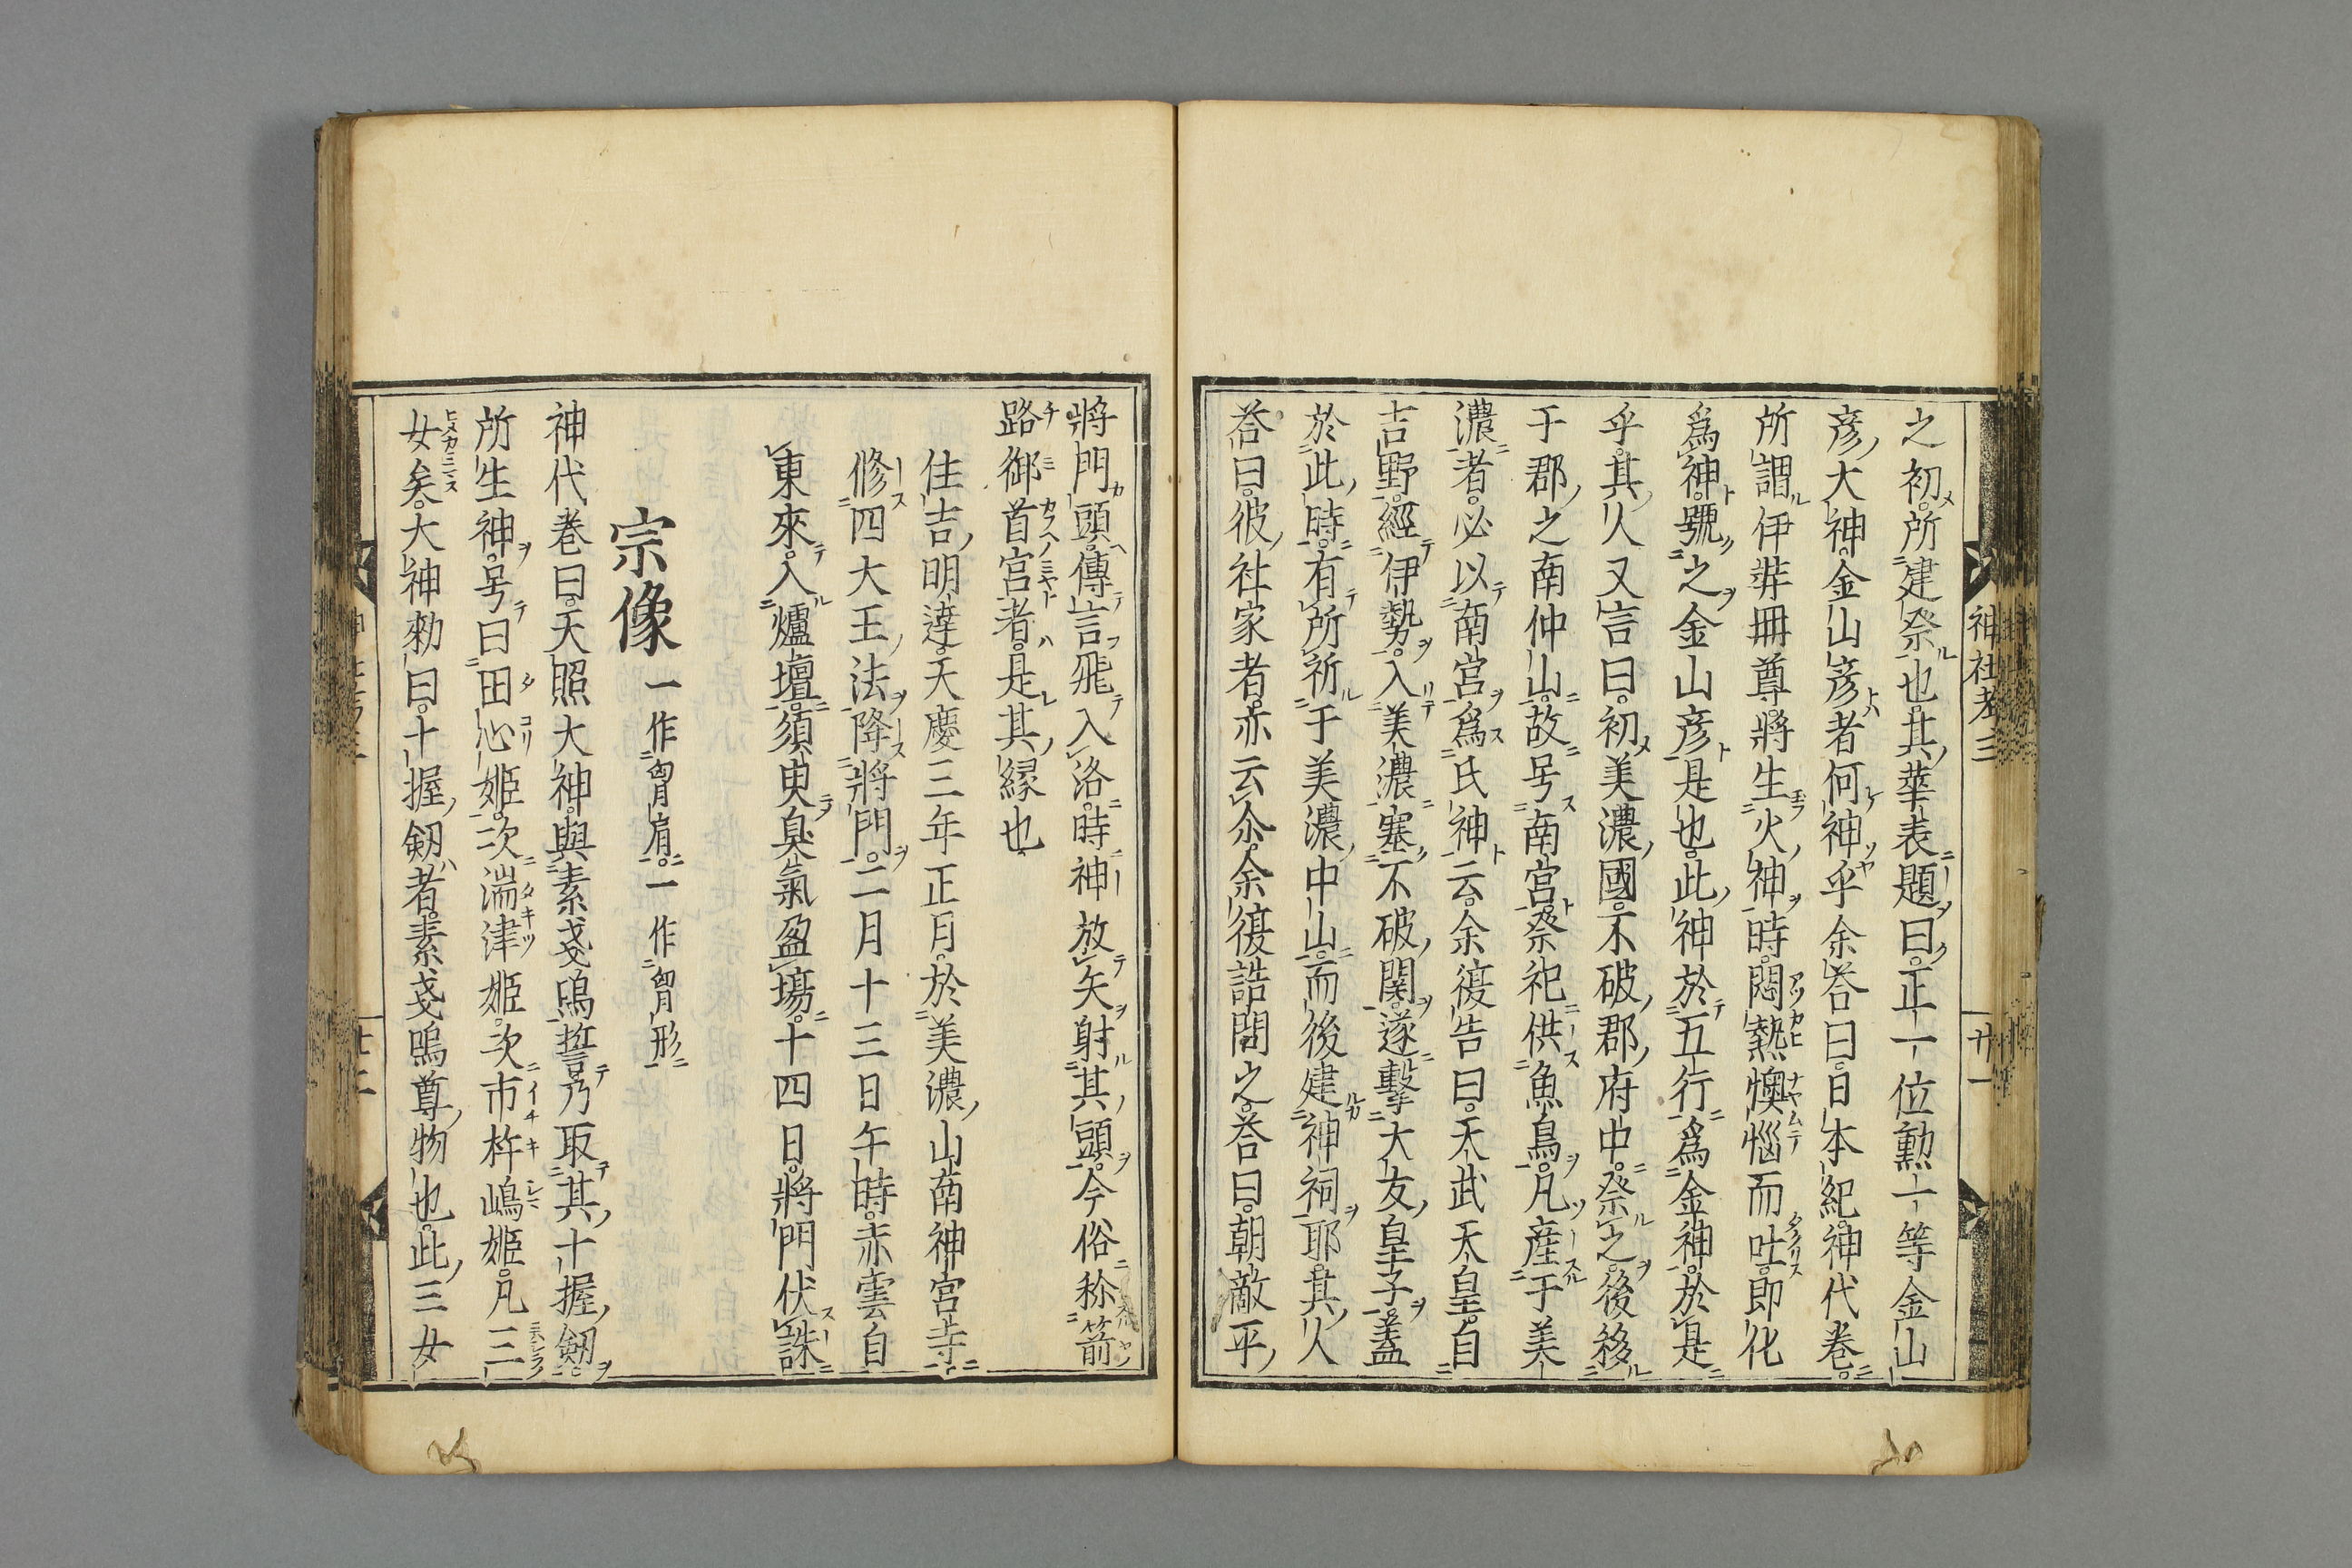 之初所建祭也其華表題曰正一位勲一等金山
彦大神金山彦者何神乎余荅曰日本紀神代巻
所謂伊弉冊尊將生火神時悶熱懊惱而吐即化
爲神號之金山彦是也此神於五行爲金神於是
乎其人又言曰初美濃國不破郡府中祭之後移
于郡之南仲山故号南宮祭祀供魚鳥凡産于美
濃者必以南宮爲氏神云余復告曰天武天皇自
吉野經伊勢入美濃塞不破関遂擊大友皇子蓋
於此時有所祈于美濃中山而後建神祠耶其人
荅曰彼社家者亦云尒余復詰問之荅曰朝敵平
將門頭傳言飛入洛時神放矢射其頭今俗称箭
路御首宮者是其縁也
住吉明達天慶三年正月於美濃山南神宮寺
修四大王法降將門二月十三日午時赤雲自
東來入爐壇須臾臭氣盈場十四日將門伏誅
宗像 一作胷肩一作胷形
神代巻曰天照大神與素戔嗚誓乃取其十握劔
所生神号曰田心姫次湍津姫次市杵嶋姫凡三
女矣大神勑曰十握劔者素戔嗚尊物也此三女
神社考三
廿一